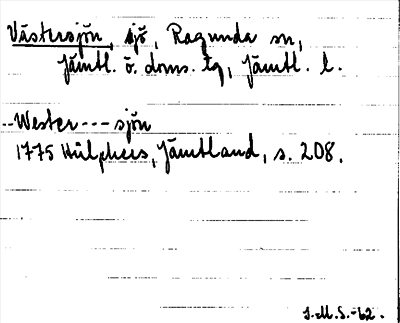 Västersjön, sjö, Ragunda sn,
Jämtl. ö. doms. tg, Jämtl. l.
Wester---sjön
1775 Hülphers, Jämtland, s. 208.
J.M.S.-62.